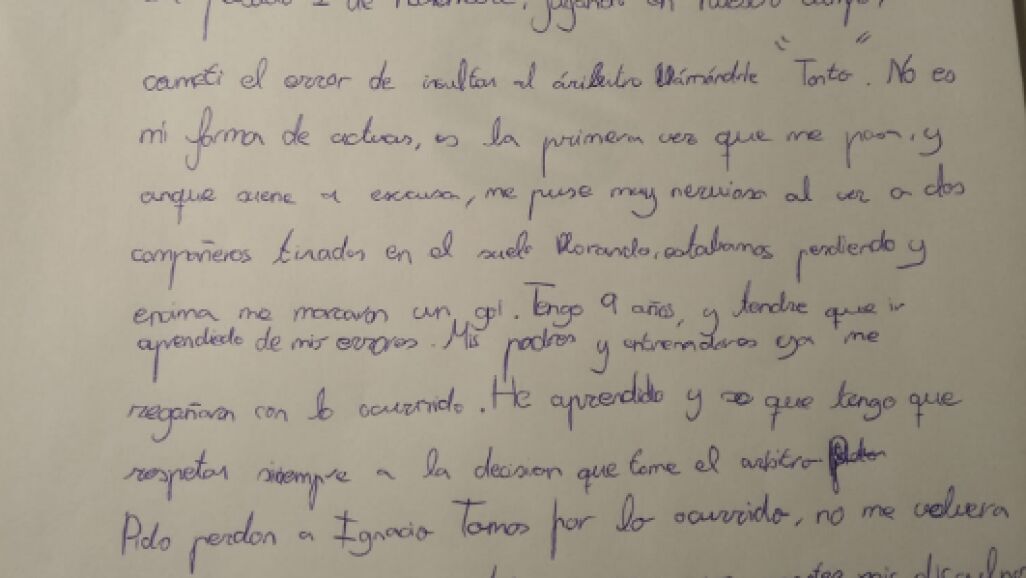 pasado 2 de Noviembre, jugando en nuestro campo,
cometi el error de insultar al áribitro llámándole "Tonto". No es
mi forma de actuar, es la primera vez que me pasa, y
anque suene a excusa, me puse muy nerviosa al ver a dos
compañeros tirados en el suelo llorando, estabamos perdiendo y
encima me marcaron un gol. Tengo 9 años, y tendre que ir
aprendiedo de mis errores. Mis padres y entrenadores ya me
regañaron con lo ocurrido. He aprendido y se que tengo que
respetar siempre a la decision que tome el arbitro
Pido perdon a Ignacio Tamos por lo ocurrido, no me volvera
mis disculpas